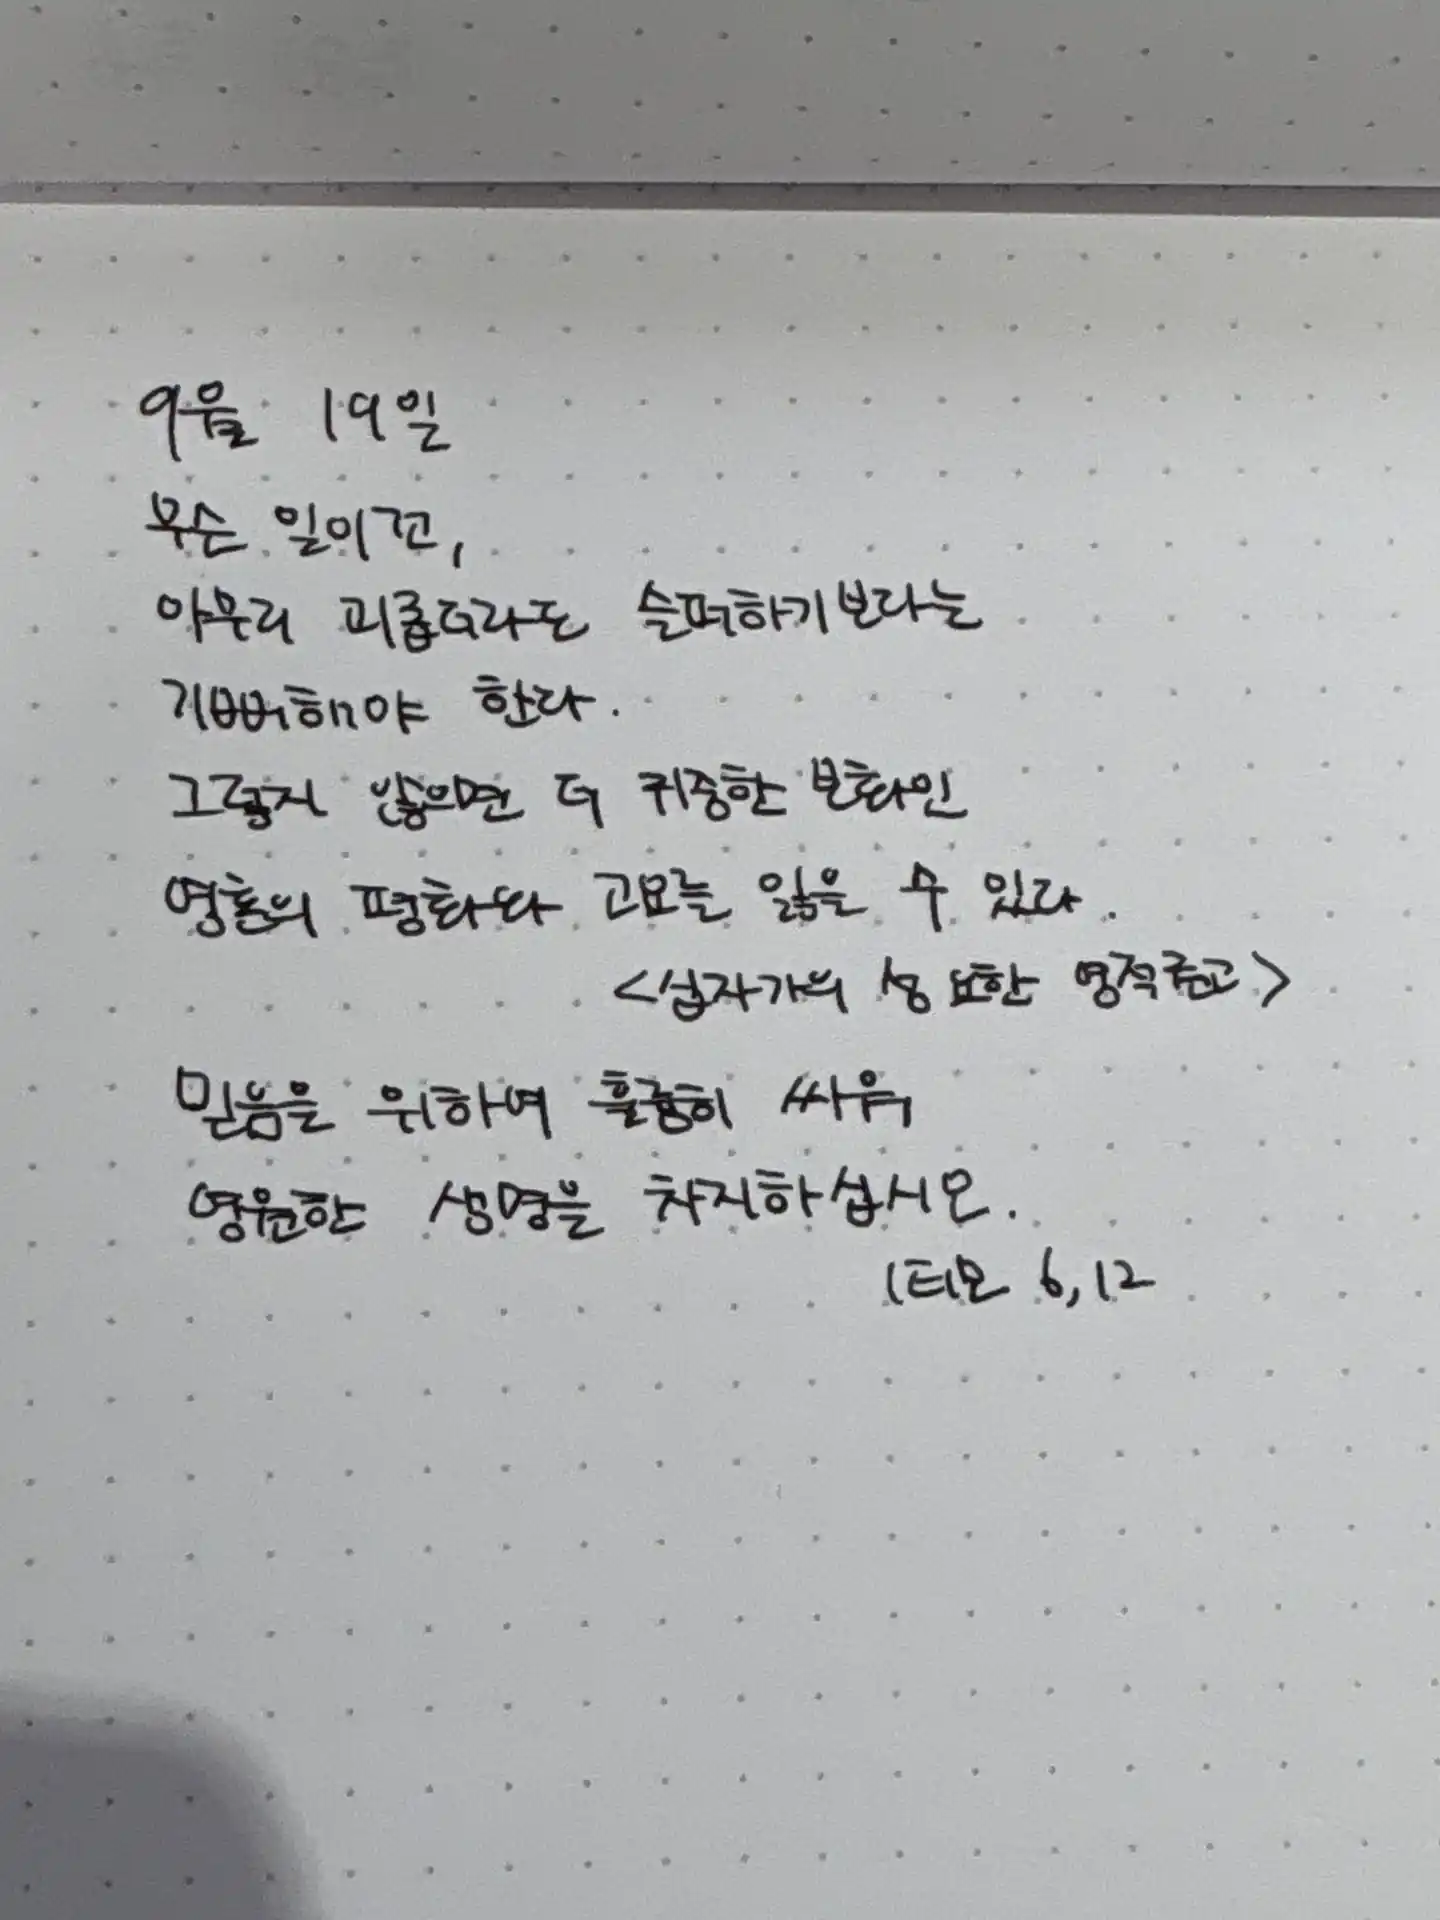 9월 19일
무슨 일이고,
아무리 괴롭더라도 슬퍼하기보다는
기뻐해야 한다.
그렇지 않으면 더 귀중한 보화인
영혼의 평화와 고요를 잃을 수 있다.
<십자가의 성 요한 영적권고>
믿음을 위하여 훌륭히 싸워
영원한 생명을 차지하십시오.
1티모 6,12